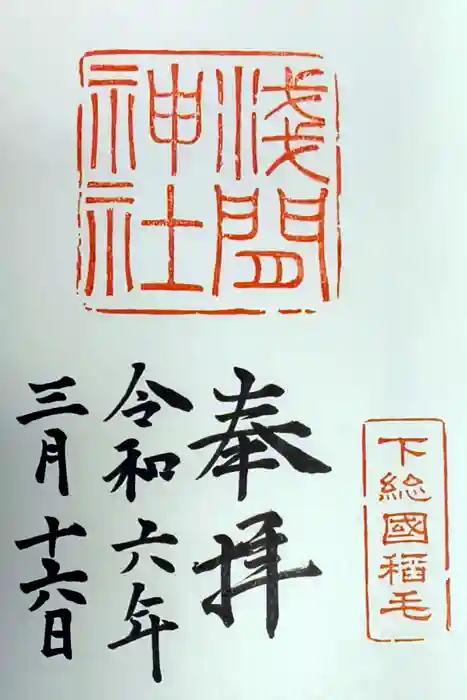 浅間
神社
下総國稲毛
奉拝
令和六年
三月十六日